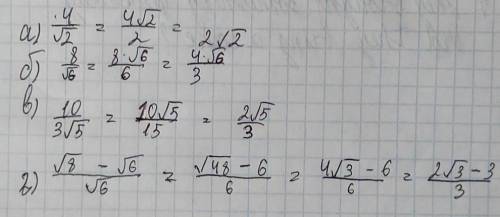 а) 4/√2 = 4√2/2 = 2√2
б) 8/√6 = 8·√6/6 = 4·√6/3
в) 10/3√5 = 10√5/15 = 2√5/3
г) √8 - √6/√6 = √48 - 6/6 = 4√3 - 6/6 = 2√3 - 3/3